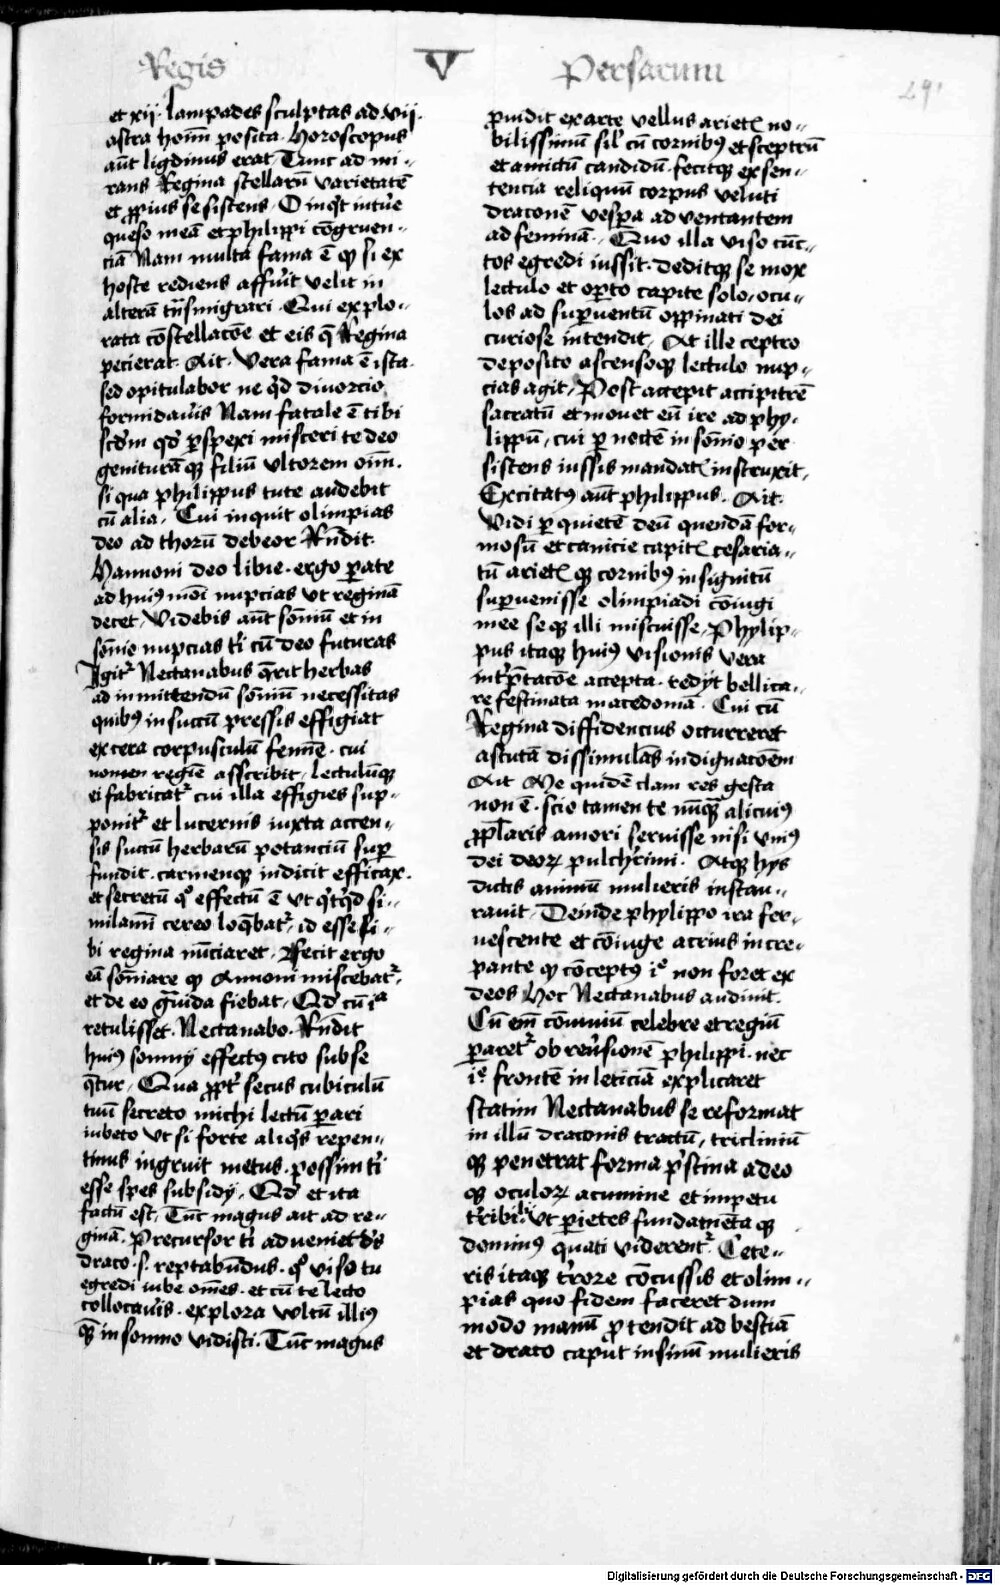 Regis V Persarum
291
et xij. lampades sculptas ad vij.
astra homīm posita. Horoscopus
aūt ligdinus erat. Tunc ad mi-
rans Regina stellarū varietatē
et ꝓpius se sistens. O inqͥt intuē
queso meā et philippi congruen-
ciā Nam multa fama ē qͥ si ex
hoste rediens affuͥt velit in
alterā tͣnsmigrari. Qui explo-
rata cōstellacōe et eis q̄ Regina
pecierat. Ait. Vera fama ē ista.
sed opitulabor ne qͥd diuorcio
formidaūis Nam fatale ē tibi
scd̄m qd̄ ꝑspexi misceri te deo
genituraꝫ filiū vltorem oīm.
si qua philippus tute audebit
cū alia. Cui inquit olimpias
deo ad thorū debeor Rn̄dit
Hammoni deo libie. ergo ꝑate
ad huiꝰ mōi nupcias vt reginā
decet. Videbis aūt sōniū et in
sōnio nupcias tͥ cū deo futuras
Igitͬ Nectanabus q̄rit herbas
ad inmittendū sōniū necessitas
quibꝰ in succū pressis effigiat
ex cera corpusculū femīe. cui
nomen regīe asscribit. lectulūqꝫ
ei fabricatͬ cui illa effigies sup-
ponitͬ et lucernis iuxta accen-
sis succū herbarū potanciū suꝑ
fundit. carmenqꝫ indicit efficax.
et secretū qͦ effectū ē vt qͥcqͥd si-
milamī cereo loqͣbatͬ. id esse si-
bi regina nūciaret. Fecit ergo
eā sōniare qͥ Ammoni miscebatͬ.
et de eo gͣuida fiebat. Qd̄ cū iͣ
retulisset. Nectanabo. Rn̄dit
huiꝰ somnij effectꝰ cito subse
qͣtur. Qua ꝓpt̄ secus cubiculū
tuū secreto michi lectū ꝑari
iubeto vt si forte aliqͥs repen-
tinus ingruit metus. possim tͥ
esse spes subsidij. Qd̄ et ita
factū est. Tūc magus ait ad re-
ginā. Precursor tͥ adueniet dͥs
draco. s. reptabūdus. qͦ viso tu
egredi iube om̄es. et cū te lecto
collocaūis. explora vultū illiꝰ
qͣꝫ in somno vidisti. Tūc magus
ꝓindit ex arte vellus arietꝭ no-
bilissimū sil̄ cū cornibꝰ et sceptrū
et amictū candidū. fecitqꝫ ex sen-
tencia reliquū corpus veluti
draconē vespͣ aduentantem
ad feminā. Quo illa viso cūc-
tos egredi iussit. deditqꝫ se mox
lectulo et opͦto capite solo. ocu-
los ad suꝑuentū oppinati dei
curiose intendit. At ille ceptro
deposito ascensoqꝫ lectulo nup-
cias agit. Post accepit accipitrē
sacratū et mouet eū ire ad phy-
lippū. cui ꝑ noctē in sōnio per
sistens iussis mandatꝭ instruxit.
Excitatꝰ aūt philippus. Ait.
Vidi ꝑ quietē deū quendā for-
mosū et canicie capitꝭ cesaria-
tū arietꝭ qꝫ cornibꝰ insignitū
suꝑuenisse olimpiadi cōiugi
mee seqꝫ illi miscuisse. Phylip-
pus itaqꝫ huiꝰ visionis vera
intͥpͣtacōe accepta. redyt bellica-
re festinata macedoniā. Cui cū
Regina diffidencius occurreret
astuta dissimulās indignacōem
Ait Me quidē clam res gesta
non ē. scio tamen te nūqͣ alicuiꝰ
ꝓplaris amori seruisse nisi vniꝰ
dei deoꝝ pulchͥrimi. Atqꝫ hys
dictis animū mulieris instau-
rauit. Deinde phylippo ira fer-
uescente et cōiuge acrius incre-
pante qͥ cōceptꝰ iͤ non foret ex
deos Hoc Nectanabus audiuit.
Cū em̄ cōuiuiū celebre et regiū
ꝑaretͬ ob reūsionē philippi. nec
iͤ frontē in leticiā explicaret
statim Nectanabus se reformat
in illū draconis tractū, tricliniū
qꝫ penetrat forma pͥstina adeo
qꝫ oculoꝝ acumine et impetu
tͥribili vt pͣietes fundamēta qꝫ
domiuꝰ quati viderentͬ. Cete-
ris itaqꝫ tͥrore cōcussis et olim-
pias quo fidem faceret dum
modo manū ꝓtendit ad bestiā
et draco caput in sinū mulieris
Digitalisierung gefördert durch die Deutsche Forschungsgemeinschaft - DFG